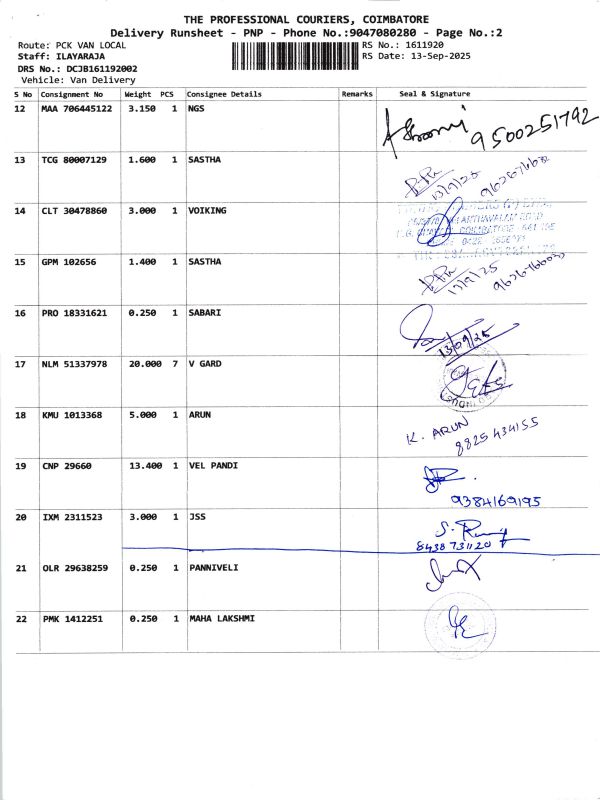 THE PROFESSIONAL COURIERS, COIMBATORE
Delivery Runsheet - PNP - Phone No.:9047080280 - Page No.:2
Route: PCK VAN LOCAL RS No.: 1611920
Staff: ILAYARAJA RS Date: 13-Sep-2025
DRS No.: DCJB161192002
Vehicle: Van Delivery
S No Consignment No Weight PCS Consignee Details Remarks Seal & Signature
12 MAA 706445122 3.150 1 NGS
9500251792
13 TCG 80007129 1.600 1 SASTHA
13/9/25
14 CLT 30478860 3.000 1 VOIKING
15 GPM 102656 1.400 1 SASTHA
13/9/25
16 PRO 18331621 0.250 1 SABARI
13/09/25
17 NLM 51337978 20.000 7 V GARD
18 KMU 1013368 5.000 1 ARUN
K. ARUN
8825434155
19 CNP 29660 13.400 1 VEL PANDI
9384169195
20 IXM 2311523 3.000 1 JSS
8438731120
21 OLR 29638259 0.250 1 PANNIVELI
22 PMK 1412251 0.250 1 MAHA LAKSHMI